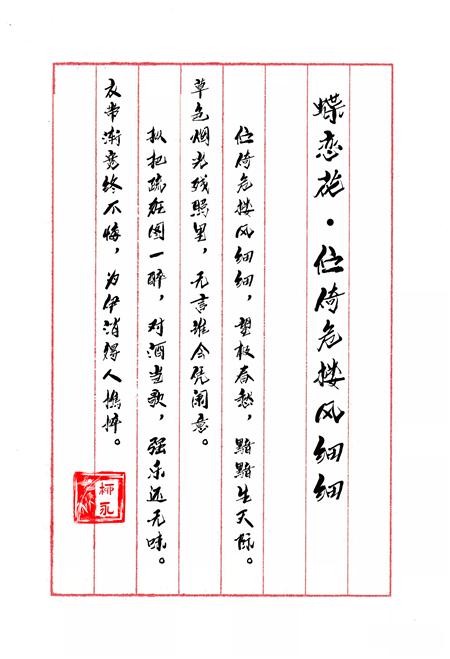 蝶恋花·伫倚危楼风细细
伫倚危楼风细细，望极春愁，黯黯生天际。
草色烟光残照里，无言谁会凭阑意。
拟把疏狂图一醉，对酒当歌，强乐还无味。
衣带渐宽终不悔，为伊消得人憔悴。
柳永